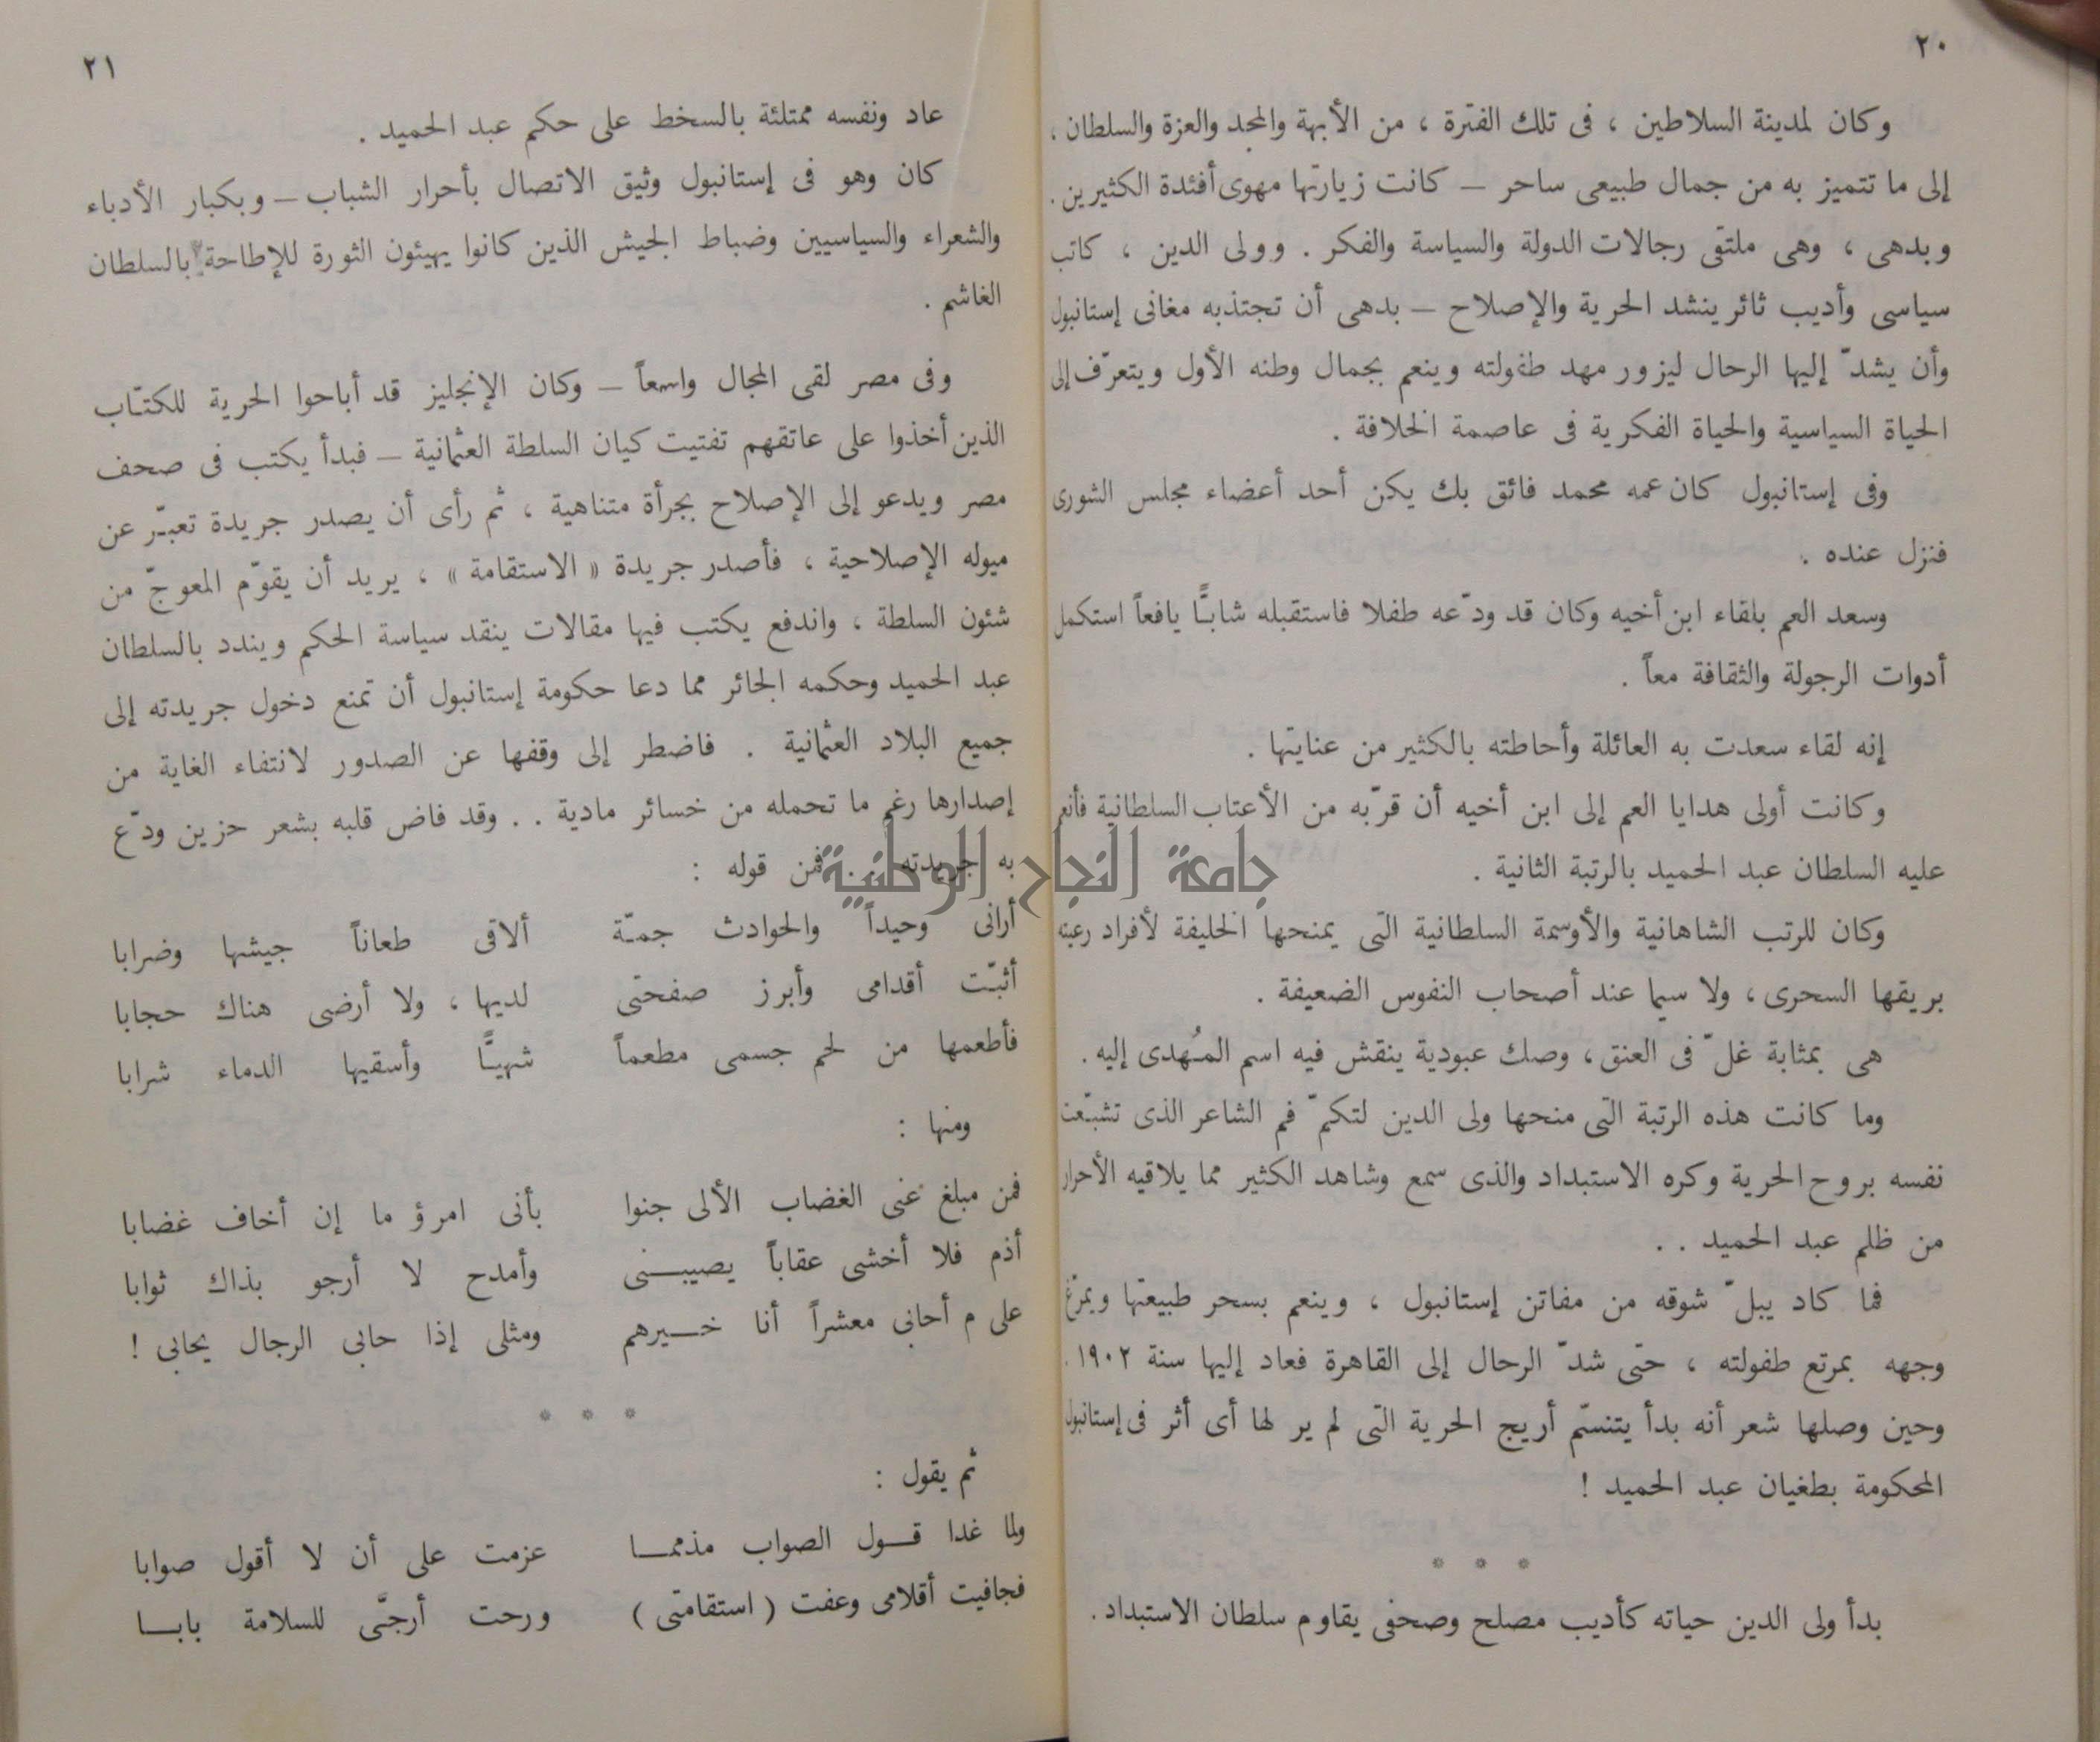 ٢٠
وكان لمدينة السلاطين ، فى تلك الفترة ، من الأبهة والمجد والعزة والسلطان ،
إلى ما تتميز به من جمال طبيعى ساحر – كانت زيارتها مهوى أفئدة الكثيرين .
وبدهى ، وهى ملتقى رجالات الدولة والسياسة والفكر . وولى الدين ، كاتب
سياسى وأديب ثائر ينشد الحرية والإصلاح – بدهى أن تجتذبه مغانى إستانبول
وأن يشدّ إليها الرحال ليزور مهد طفولته وينعم بجمال وطنه الأول ويتعرّف إلى
الحياة السياسية والحياة الفكرية فى عاصمة الخلافة .
وفى إستانبول كان عمه محمد فائق بك يكن أحد أعضاء مجلس الشورى
فنزل عنده .
وسعد العم بلقاء ابن أخيه وكان قد ودّعه طفلا فاستقبله شابًّا يافعاً استكمل
أدوات الرجولة والثقافة معاً .
إنه لقاء سعدت به العائلة وأحاطته بالكثير من عنايتها .
وكانت أولى هدايا العم إلى ابن أخيه أن قرّبه من الأعتاب السلطانية فأنعم
عليه السلطان عبد الحميد بالرتبة الثانية .
وكان للرتب الشاهانية والأوسمة السلطانية التى يمنحها الخليفة لأفراد رعيته
بريقها السحرى ، ولا سيما عند أصحاب النفوس الضعيفة .
هى بمثابة غلّ فى العنق ، وصك عبودية ينقش فيه اسم المُهدى إليه .
وما كانت هذه الرتبة التى منحها ولى الدين لتكمّ فم الشاعر الذى تشبّعت
نفسه بروح الحرية وكره الاستبداد والذى سمع وشاهد الكثير مما يلاقيه الأحرار
من ظلم عبد الحميد . .
فما كاد يبلّ شوقه من مفاتن إستانبول ، وينعم بسحر طبيعتها ويمرّغ
وجهه بمرتع طفولته ، حتى شدّ الرحال إلى القاهرة فعاد إليها سنة ١٩٠٢ .
وحين وصلها شعر أنه بدأ يتنسّم أريج الحرية التى لم ير لها أى أثر فى إستانبول
المحكومة بطغيان عبد الحميد !
* * *
بدأ ولى الدين حياته كأديب مصلح وصحفى يقاوم سلطان الاستبداد .
٢١
عاد ونفسه ممتلئة بالسخط على حكم عبد الحميد .
كان وهو فى إستانبول وثيق الاتصال بأحرار الشباب – وبكبار الأدباء
والشعراء والسياسيين وضباط الجيش الذين كانوا يهيئون الثورة للإطاحة بالسلطان
الغاشم .
وفى مصر لقى المجال واسعاً – وكان الإنجليز قد أباحوا الحرية للكتّاب
الذين أخذوا على عاتقهم تفتيت كيان السلطة العثمانية – فبدأ يكتب فى صحف
مصر ويدعو إلى الإصلاح بجرأة متناهية ، ثم رأى أن يصدر جريدة تعبّر عن
ميوله الإصلاحية ، فأصدر جريدة « الاستقامة » ، يريد أن يقوّم المعوجّ من
شئون السلطة ، واندفع يكتب فيها مقالات ينقد سياسة الحكم ويندد بالسلطان
عبد الحميد وحكمه الجائر مما دعا حكومة إستانبول أن تمنع دخول جريدته إلى
جميع البلاد العثمانية . فاضطر إلى وقفها عن الصدور لانتفاء الغاية من
إصدارها رغم ما تحمله من خسائر مادية . . وقد فاض قلبه بشعر حزين ودّع
به جريدته . . فمن قوله :
أرانى وحيداً والحوادث جمّة ألاقى طعاناً جيشها وضرابا
أثبّت أقدامى وأبرز صفحتى لديها ، ولا أرضى هناك حجابا
فأطعمها من لحم جسمى مطعماً شهيًّا وأسقيها الدماء شرابا
ومنها :
فمن مبلغ عنى الغضاب الألى جنوا بأنى امرؤ ما إن أخاف غضابا
أذم فلا أخشى عقاباً يصيبنى وأمدح لا أرجو بذاك ثوابا
على م أحابى معشراً أنا خيرهم ومثلى إذا حابى الرجال يحابى !
* * *
ثم يقول :
ولما غدا قول الصواب مذمما عزمت على أن لا أقول صوابا
فجافيت أقلامى وعفت ( استقامتى ) ورحت أرجّى للسلامة بابا
جامعة النجاح الوطنية